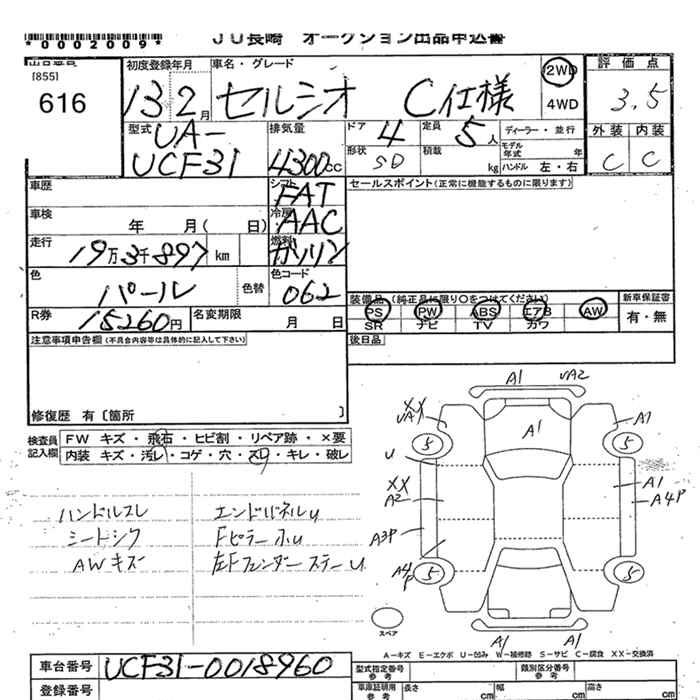 *0002009*
JU長崎 オークション出品申込書
[855]
616
初度登録年月
13 2月
車名・グレード
セルシオ C仕様
2WD
4WD
評価点
3.5
外装 内装
C C
型式
UA-
UCF31
排気量
4300cc
ドア 4
定員 5人
ディーラー・並行
形状 SD
積載 kg
モデル年式 年
ハンドル 左・右
車歴
シフト
FAT
セールスポイント(正常に機能するものに限ります)
車検 年 月( 日)
冷房
AAC
走行
19万3千897km
燃料
ガソリン
色
パール
色替
色コード
062
装備品(純正品に限り○をつけてください)
PS PW ABS エアB AW
SR ナビ TV カワ
新車保証書
有・無
R券
15260円
名変期限 月 日
注意事項申告欄(不具合内容等は具体的に記入して下さい)
後日品
修復歴 有〔箇所 〕
検査員
記入欄
FW キズ・飛石・ヒビ割・リペア跡・×要
内装 キズ・汚レ・コゲ・穴・スレ・キレ・破レ
ハンドルスレ
シートシワ
AWキズ
エンドパネルu
Fピラーホu
左Fフェンダーステーu
A1 UA2
XX
UA1
A1
A1
5 5
U
XX
A2
A1
A4P
A3P
A4P
5 5
スペア
A1 A1
A-キズ E-エクボ U-凹み W-補修跡 S-サビ C-腐食 XX-交換済
車台番号 UCF31-0018960
登録番号
型式指定番号
参考
類別区分番号
参考
車庫証明用
参考
長さ cm
幅 cm
高さ cm